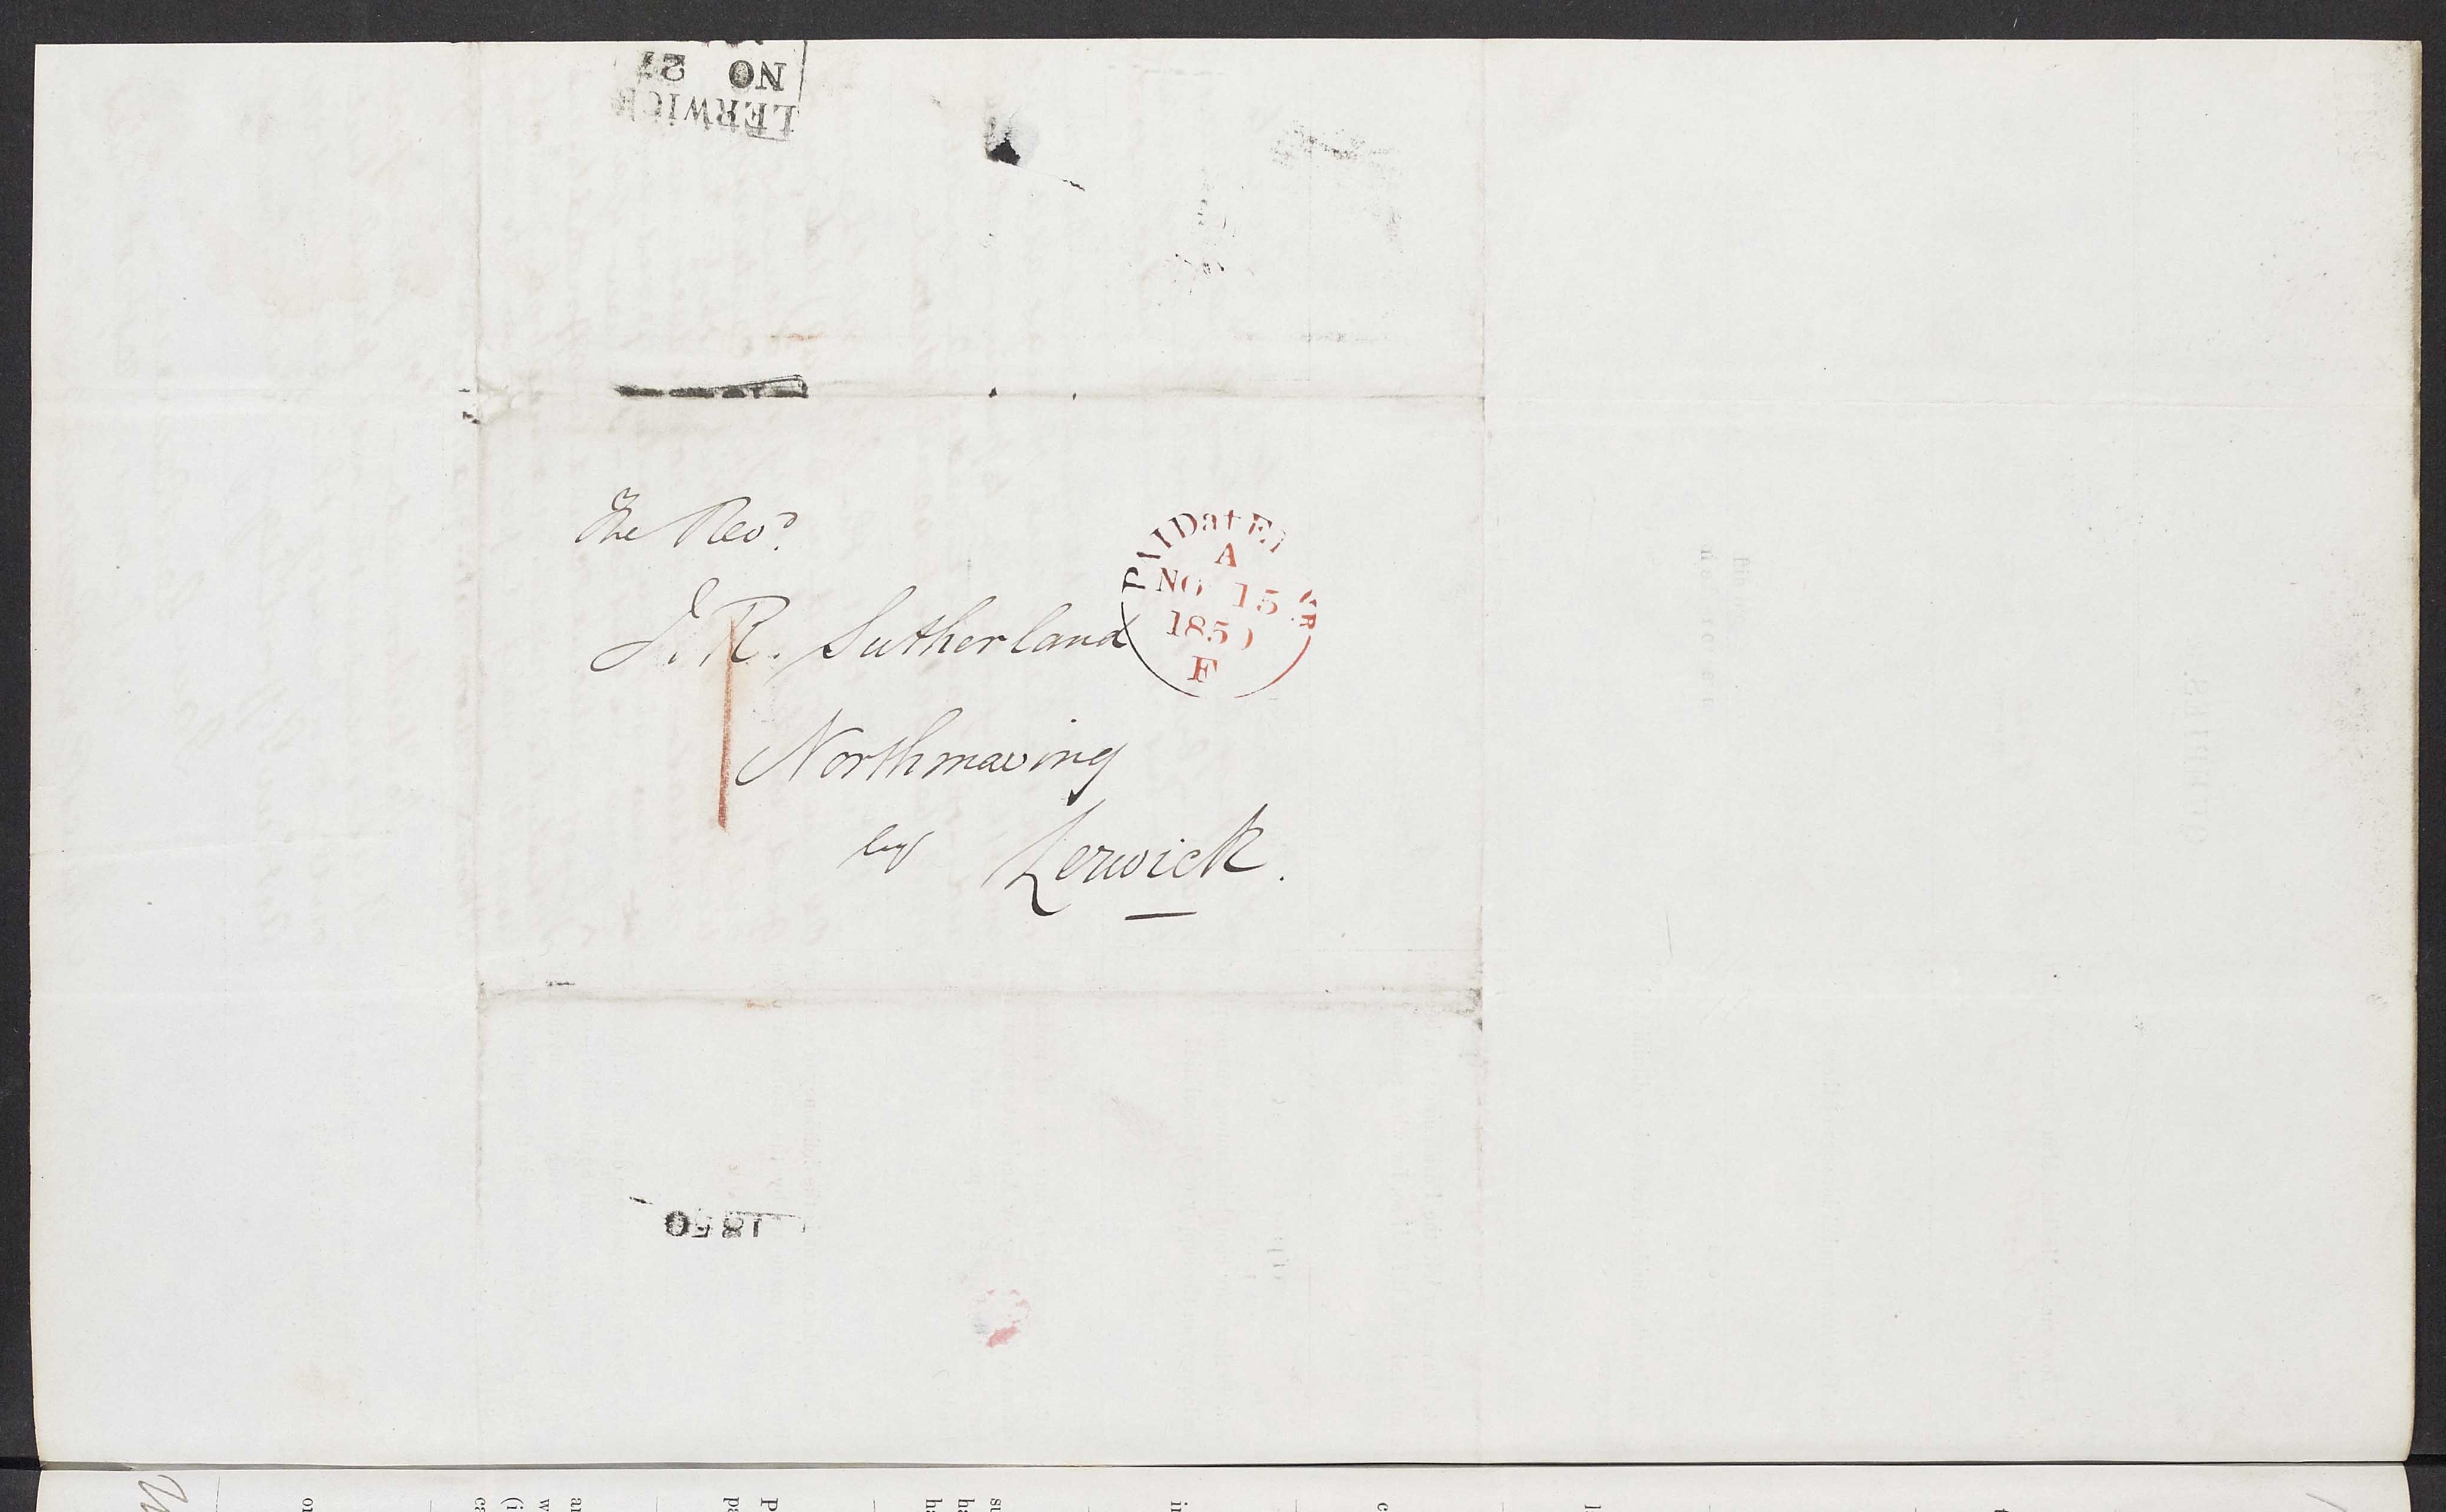 LERWICK
NO 27
The Revd
J. R. Sutherland
Northmaving
by Lerwick.
PAID at
A
NO 15
1850
F
1850